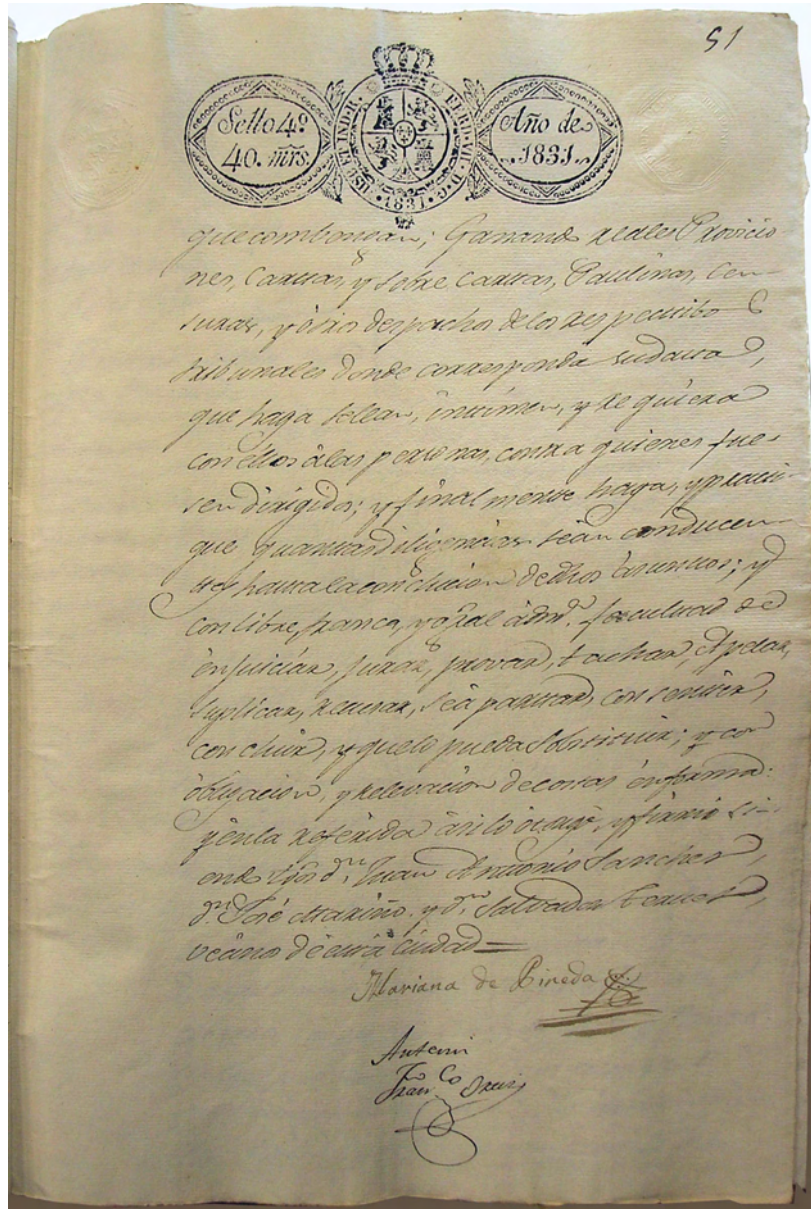 51
Sello 4º
40. mrs.
HISP. ET IND. R. FERD. VII. D. G. 1831
Año de
1831
que combengan; Ganando reales Provicio
nes, Cartas, y sobre Cartas, Paulinas, Cen-
suras, y otros despachos de los respectibos
tribunales donde corresponda su data,
que haga se lean, intimen, y requiera
con ellos á las personas, contra quienes fue-
sen dirigidos; y finalmente haga, y practi-
que quantas diligencias sean conducen-
tes hasta la conclucion de dhos asuntos; y
con libre, franca, y gral admon. facultad de
enjuiciar, jurar, provar, tachar, Apelar,
suplicar, recusar, se apartar, consentir,
concluir, y que lo pueda sobstituir; y con
obligacion, y relevacion de costas en forma:
y en la referida asi lo otorgó, y firmó si-
endo tgos dn. Juan Antonio Sanchez,
dn. José Mariño, y dn. Salvador
vecinos de esta Ciudad=
Mariana de Pineda
Antemi
Franco